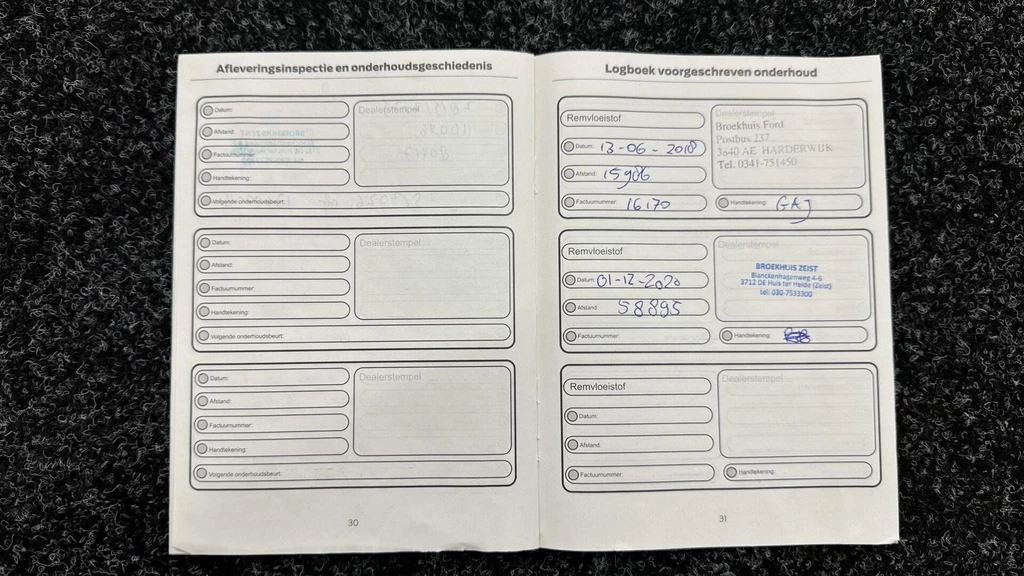 Afleveringsinspectie en onderhoudsgeschiedenis
Datum:
Afstand:
Factuurnummer:
Handtekening:
Volgende onderhoudsbeurt:
Dealerstempel
Datum:
Afstand:
Factuurnummer:
Handtekening:
Volgende onderhoudsbeurt:
Dealerstempel
Datum:
Afstand:
Factuurnummer:
Handtekening:
Volgende onderhoudsbeurt:
Dealerstempel
30
Logboek voorgeschreven onderhoud
Remvloeistof
Datum: 13-06-2018
Afstand: 15986
Factuurnummer: 16170
Dealerstempel
Broekhuis Ford
Postbus 237
3840 AE HARDERWIJK
Tel. 0341-751450
Handtekening:
Remvloeistof
Datum: 01-12-2020
Afstand: 58895
Factuurnummer:
Dealerstempel
BROEKHUIS ZEIST
Blanckenhagenweg 4-6
3712 DE Huis ter Heide (Zeist)
tel: 030-7533300
Handtekening:
Remvloeistof
Datum:
Afstand:
Factuurnummer:
Dealerstempel
Handtekening:
31